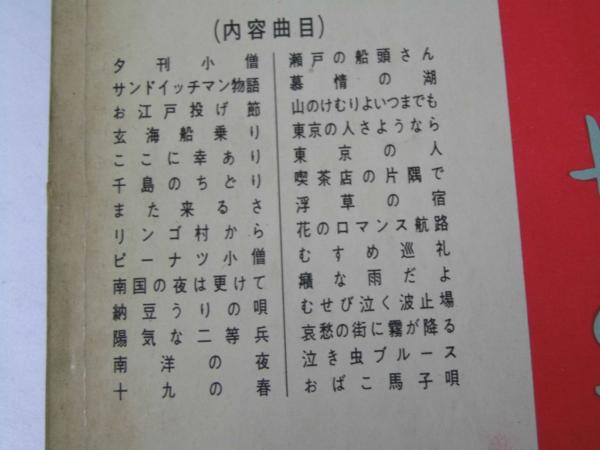 (内容曲目)
夕刊小僧
サンドイッチマン物語
お江戸投げ節
玄海船乗り
ここに幸あり
千島のちどり
また来るさ
リンゴ村から
ピーナツ小僧
南国の夜は更けて
納豆うりの唄
陽気な二等兵
南洋の夜
十九の春
瀬戸の船頭さん
慕情の湖
山のけむりよいつまでも
東京の人さようなら
東京の人
喫茶店の片隅で
浮草の宿
花のロマンス航路
むすめ巡礼
癪な雨だよ
むせび泣く波止場
哀愁の街に霧が降る
泣き虫ブルース
おばこ馬子唄